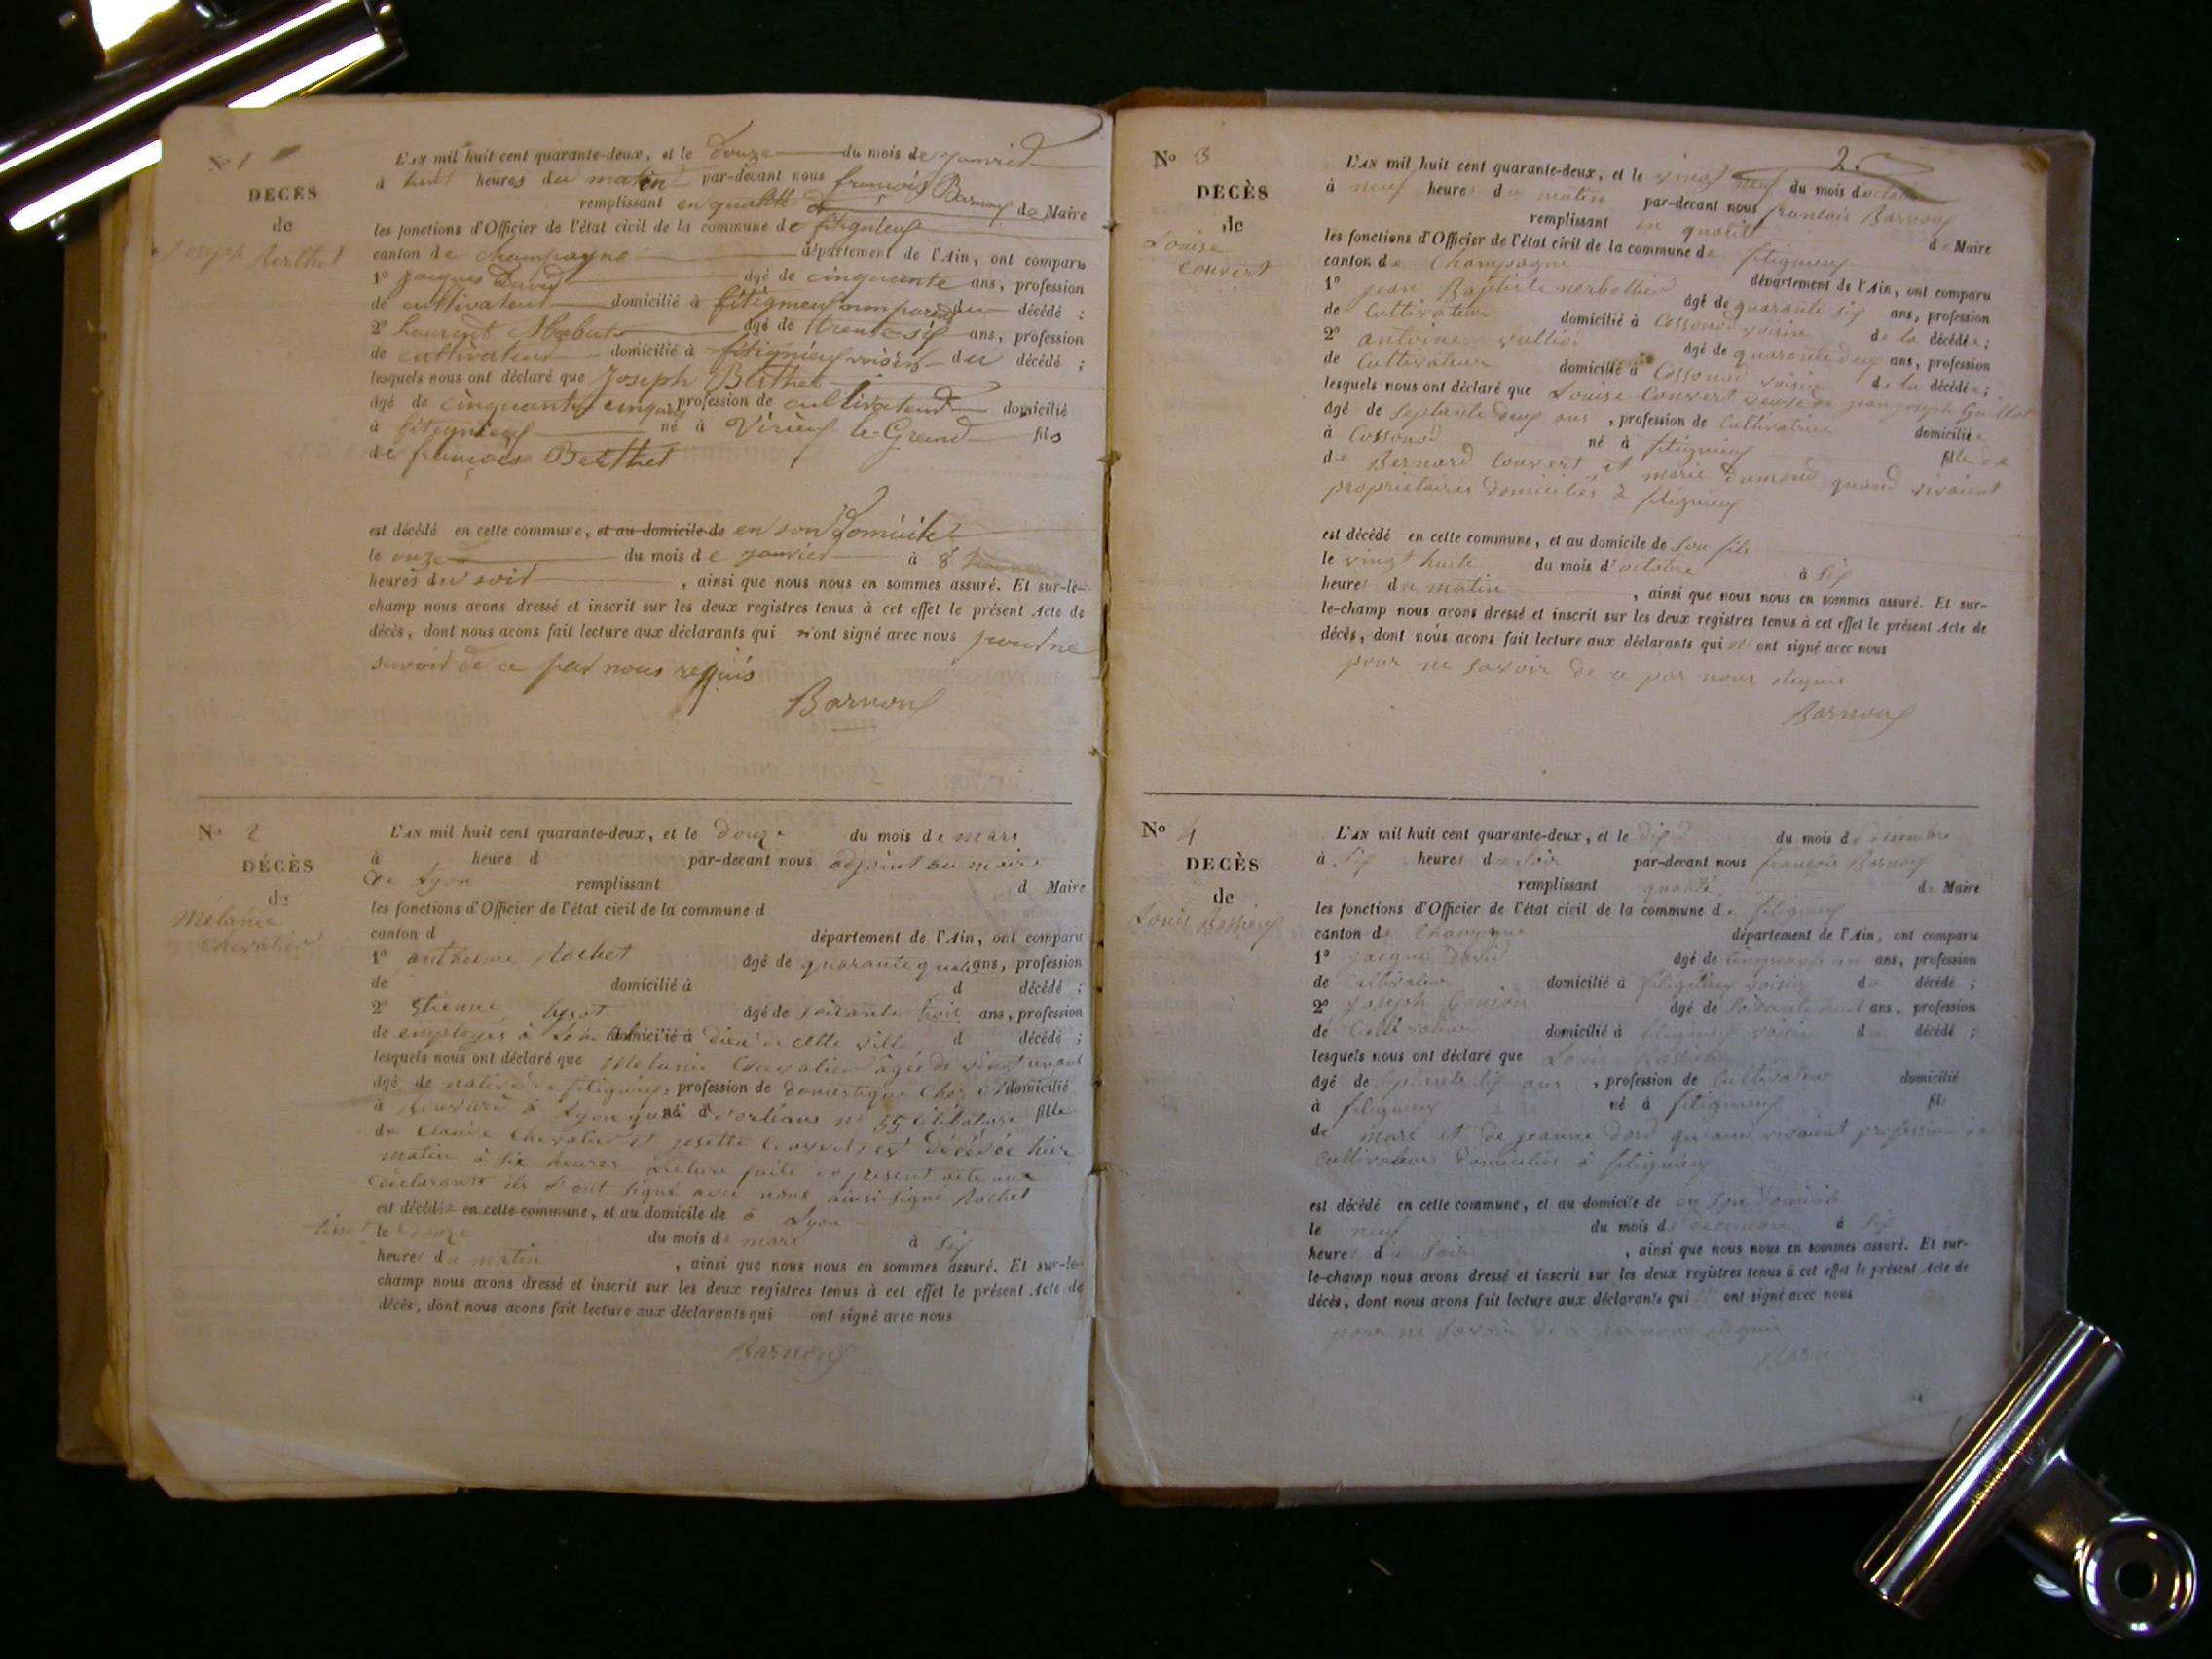 No 1
DECÈS
de
Joseph Berthet
L'AN mil huit cent quarante-deux, et le Douze du mois de janvier
à huit heures du matin par-devant nous françois Barnoux
remplissant en qualité de Maire
les fonctions d'Officier de l'état civil de la commune de fitignieux
canton de champagne département de l'Ain, ont comparu
1o Jacques David âgé de cinquante ans, profession
de cultivateur domicilié à fitignieux non parent du décédé ;
2o Laurent âgé de trente six ans, profession
de cultivateur domicilié à fitignieux voisin du décédé ;
lesquels nous ont déclaré que Joseph Berthet
âgé de cinquante cinq ans, profession de cultivateur domicilié
à fitignieux né à Virieux le-Grand fils
de françois Berthet
est décédé en cette commune, et au domicile de en son Domicile
le onze du mois de janvier à 8
heures du soir, ainsi que nous nous en sommes assuré. Et sur-le-
champ nous avons dressé et inscrit sur les deux registres tenus à cet effet le présent Acte de
décès, dont nous avons fait lecture aux déclarants qui n'ont signé avec nous pour ne
savoir de ce par nous requis
Barnoux
No 2
DÉCÈS
de
Mélanie
Chevalier
L'AN mil huit cent quarante-deux, et le Douze du mois de mars
à heure d par-devant nous adjoint au maire
de Lyon remplissant d Maire
les fonctions d'Officier de l'état civil de la commune d
canton d département de l'Ain, ont comparu
1o anthelme Rochet âgé de quarante quatre ans, profession
de domicilié à d décédé ;
2o Etienne âgé de soixante trois ans, profession
de employés à domicilié à dieu de cette ville d décédé ;
lesquels nous ont déclaré que Melanie Chevalier âgée de vingt un ans
âgé de native de fitignieux, profession de domestique chez domicilié
à à Lyon né à d'orléans no 55 célibataire fille
de Claude Chevalier et josette Couvert, est Décédée hier
matin à six heures Lecture faite du présent acte aux
déclarants ils ont signé avec nous ainsi signé Rochet
est décédée en cette commune, et au domicile de à Lyon
le douze du mois de mars à six
heures du matin, ainsi que nous nous en sommes assuré. Et sur-le-
champ nous avons dressé et inscrit sur les deux registres tenus à cet effet le présent Acte de
décès, dont nous avons fait lecture aux déclarants qui ont signé avec nous
Barnoux
2.
No 3
DECÈS
de
Louise
Couvert
L'AN mil huit cent quarante-deux, et le vingt neuf du mois d'octobre
à neuf heures du matin par-devant nous francois Barnoux
remplissant en qualité de Maire
les fonctions d'Officier de l'état civil de la commune de fitignieux
canton de Champagne département de l'Ain, ont comparu
1o jean Baptiste âgé de quarante six ans, profession
de Cultivateur domicilié à Cossonod voisin de la décédée ;
2o antoine âgé de quarante deux ans, profession
de Cultivateur domicilié à Cossonod voisin de la décédée ;
lesquels nous ont déclaré que Louise Couvert veuve de jean joseph Guillot
âgé de septante deux ans, profession de Cultivatrice domiciliée
à Cossonod né à fitignieux fille de
de Bernard Couvert et marie quand vivaient
proprietaires domiciliés à fitignieux
est décédé en cette commune, et au domicile de son fils
le vingt huite du mois d'octobre à six
heures du matin, ainsi que nous nous en sommes assuré. Et sur-
le-champ nous avons dressé et inscrit sur les deux registres tenus à cet effet le présent Acte de
décès, dont nous avons fait lecture aux déclarants qui n'ont signé avec nous
pour ne savoir de ce par nous requis
Barnoux
No 4
DECÈS
de
Louis
L'AN mil huit cent quarante-deux, et le dix du mois de decembre
à six heures du soir par-devant nous francois Barnoux
remplissant qualité de Maire
les fonctions d'Officier de l'état civil de la commune de fitignieux
canton de Champagne département de l'Ain, ont comparu
1o Jacque David âgé de cinquante un ans, profession
de Cultivateur domicilié à fitignieux voisin du décédé ;
2o Joseph Goujon âgé de soixante huit ans, profession
de Cultivateur domicilié à fitignieux voisin du décédé ;
lesquels nous ont déclaré que Louis
âgé de septante six ans, profession de Cultivateur domicilié
à fitignieux né à fitignieux fils
de marc et de jeanne quand vivaient profession de
Cultivateurs domiciliés à fitignieux
est décédé en cette commune, et au domicile de en son Domicile
le neuf du mois de decembre à six
heures du soir, ainsi que nous nous en sommes assuré. Et sur-
le-champ nous avons dressé et inscrit sur les deux registres tenus à cet effet le présent Acte de
décès, dont nous avons fait lecture aux déclarants qui ont signé avec nous
pour ne savoir de ce par nous requis
Barnoux